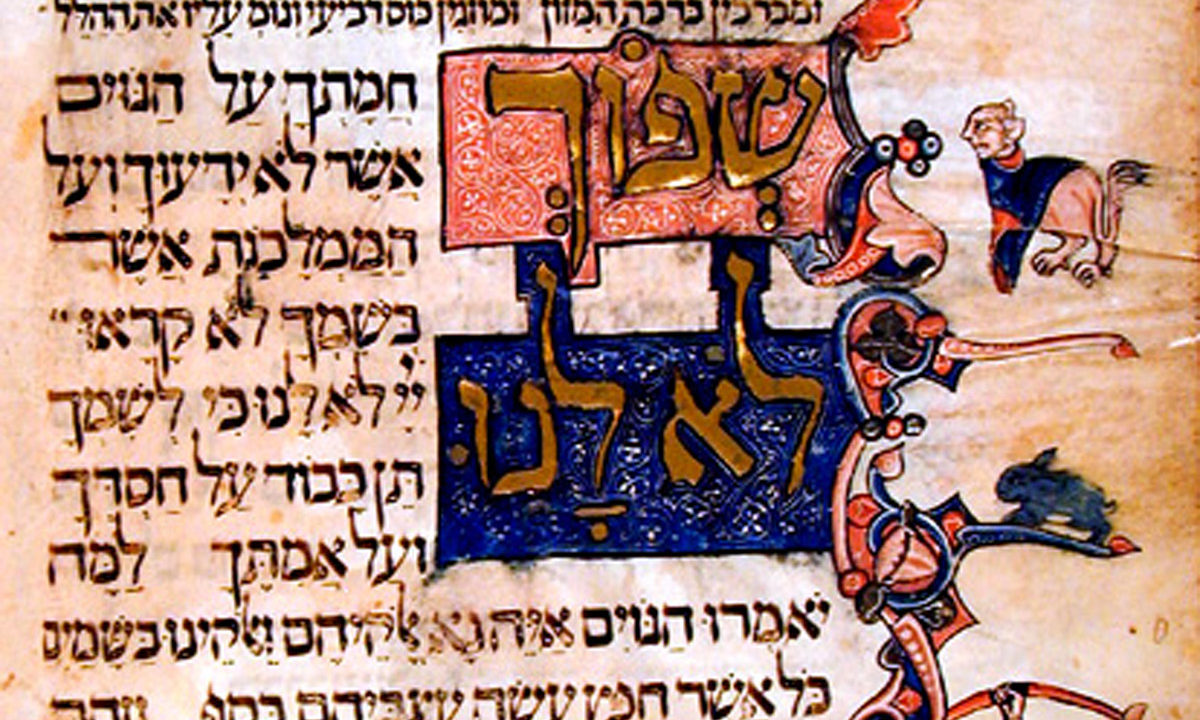 ומברכין ברכת המזון ומוזגין כוס רביעי וגומ עליו את ההלל
שְׁפֹוךְ
חֲמָתְךָ עַל הַגּוֹיִם
אֲשֶׁר לֹא יְדָעוּךָ וְעַל
הַמַּמְלָכוֹת אֲשֶׁר
בְּשִׁמְךָ לֹא קָרָאוּ
לֹא לָנוּ
יְיָ לֹא לָנוּ כִּי לְשִׁמְךָ
תֵּן כָּבוֹד עַל חַסְדְּךָ
וְעַל אֲמִתֶּךָ לָמָּה
יֹאמְרוּ הַגּוֹיִם אַיֵּה נָא אֱלֹהֵיהֶם וֵאלֹהֵינוּ בַשָּׁמַיִם
כֹּל אֲשֶׁר חָפֵץ עָשָׂה עֲצַבֵּיהֶם כֶּסֶף